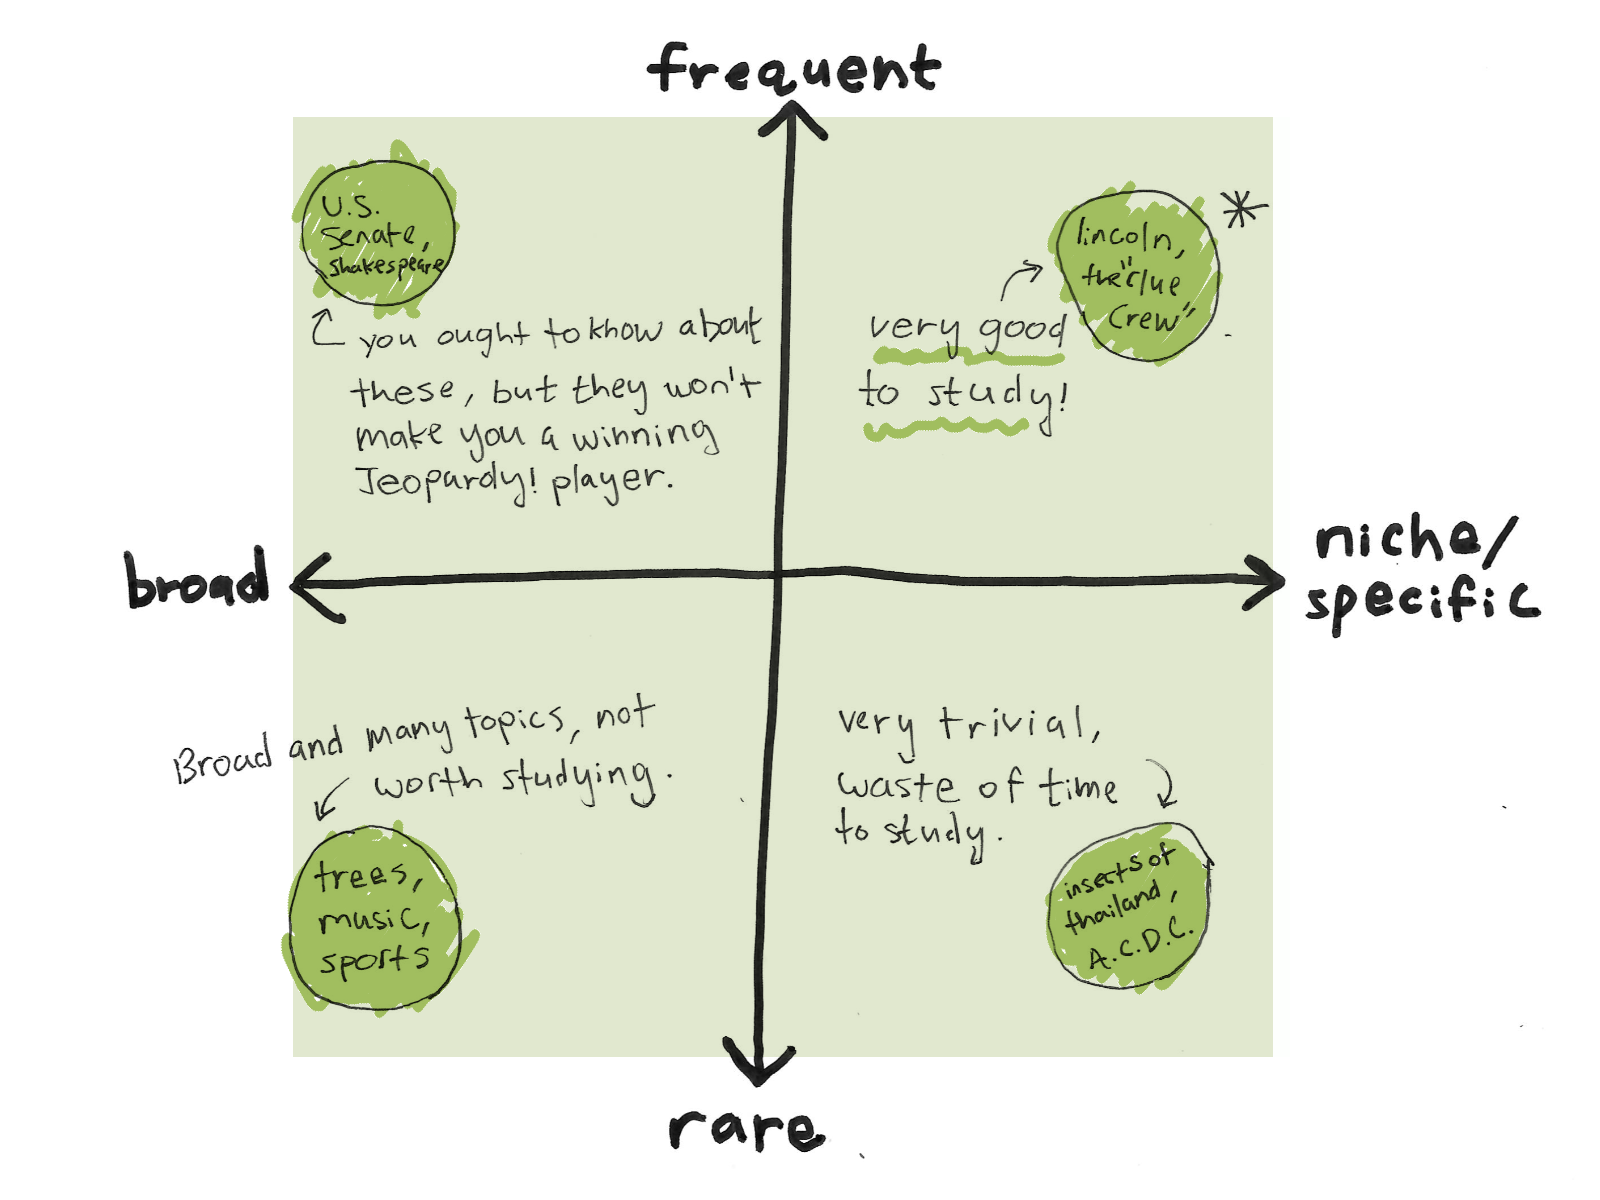 frequent
U.S.
Senate,
Shakespeare
you ought to know about
these, but they won't
make you a winning
Jeopardy! player.
*
lincoln,
the "clue
Crew"
very good
to study!
broad
niche/
specific
Broad and many topics, not
worth studying.
trees,
music,
sports
very trivial,
waste of time
to study.
insects of
thailand,
A.C.D.C.
rare